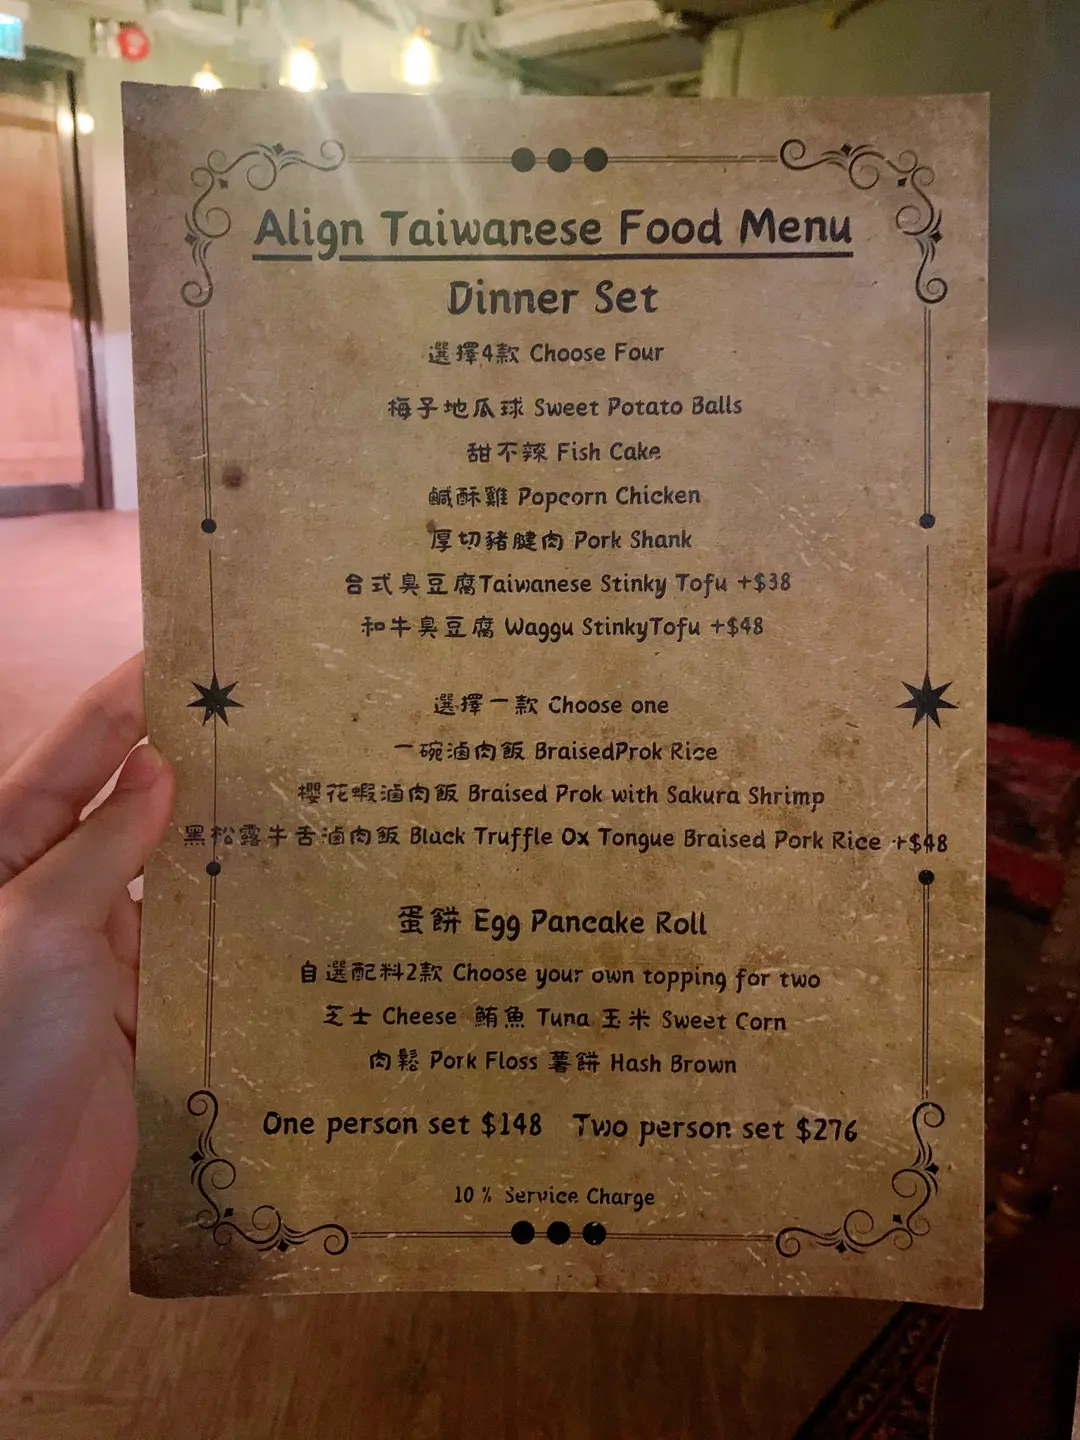 Align Taiwanese Food Menu
Dinner Set
選擇4款 Choose Four
梅子地瓜球 Sweet Potato Balls
甜不辣 Fish Cake
鹹酥雞 Popcorn Chicken
厚切豬腱肉 Pork Shank
台式臭豆腐Taiwanese Stinky Tofu +$38
和牛臭豆腐 Waggu StinkyTofu +$48
選擇一款 Choose one
一碗滷肉飯 BraisedProk Rice
櫻花蝦滷肉飯 Braised Prok with Sakura Shrimp
黑松露牛舌滷肉飯 Black Truffle Ox Tongue Braised Pork Rice +$48
蛋餅 Egg Pancake Roll
自選配料2款 Choose your own topping for two
芝士 Cheese 鮪魚 Tuna 玉米 Sweet Corn
肉鬆 Pork Floss 薯餅 Hash Brown
One person set $148 Two person set $276
10 % Service Charge